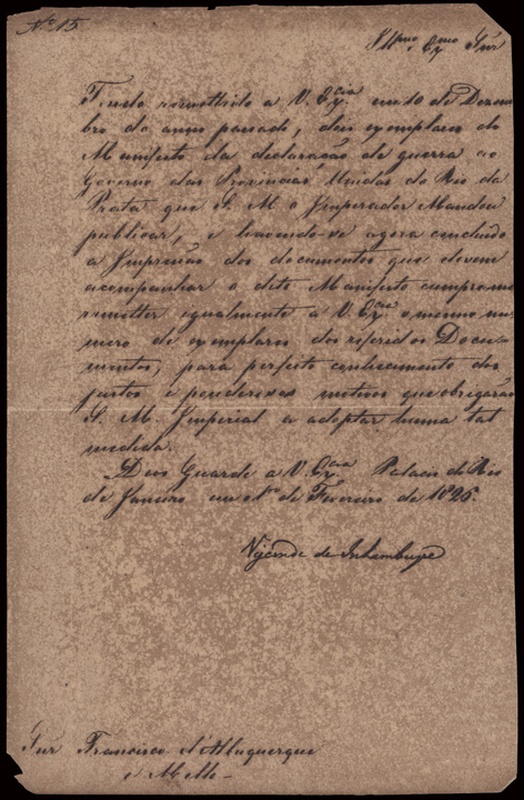 Nº 15
Illmo e Exmo Snr
Tendo remettido a V. Excia em 10 de Dezem-
bro do anno passado, dois exemplares do
Manifesto da declaração de guerra ao
Governo das Provincias Unidas do Rio da
Prata que S. M. o Imperador Mandou
publicar, e havendo-se agora concluido
a Impressão dos documentos que devem
acompanhar o dito Manifesto cumpre-me
remetter egualmente a V. Excia o mesmo nu-
mero de exemplares dos referidos Docu-
mentos, para perfeito conhecimento dos
justos e ponderosos motivos que obrigarão
S. M. Imperial a adoptar huma tal
medida.
Deos Guarde a V. Excia Palacio do Rio
de Janeiro em 1º de Fevereiro de 1826.
Visconde de Inhambupe
Snr Francisco d'Albuquerque
e Mello